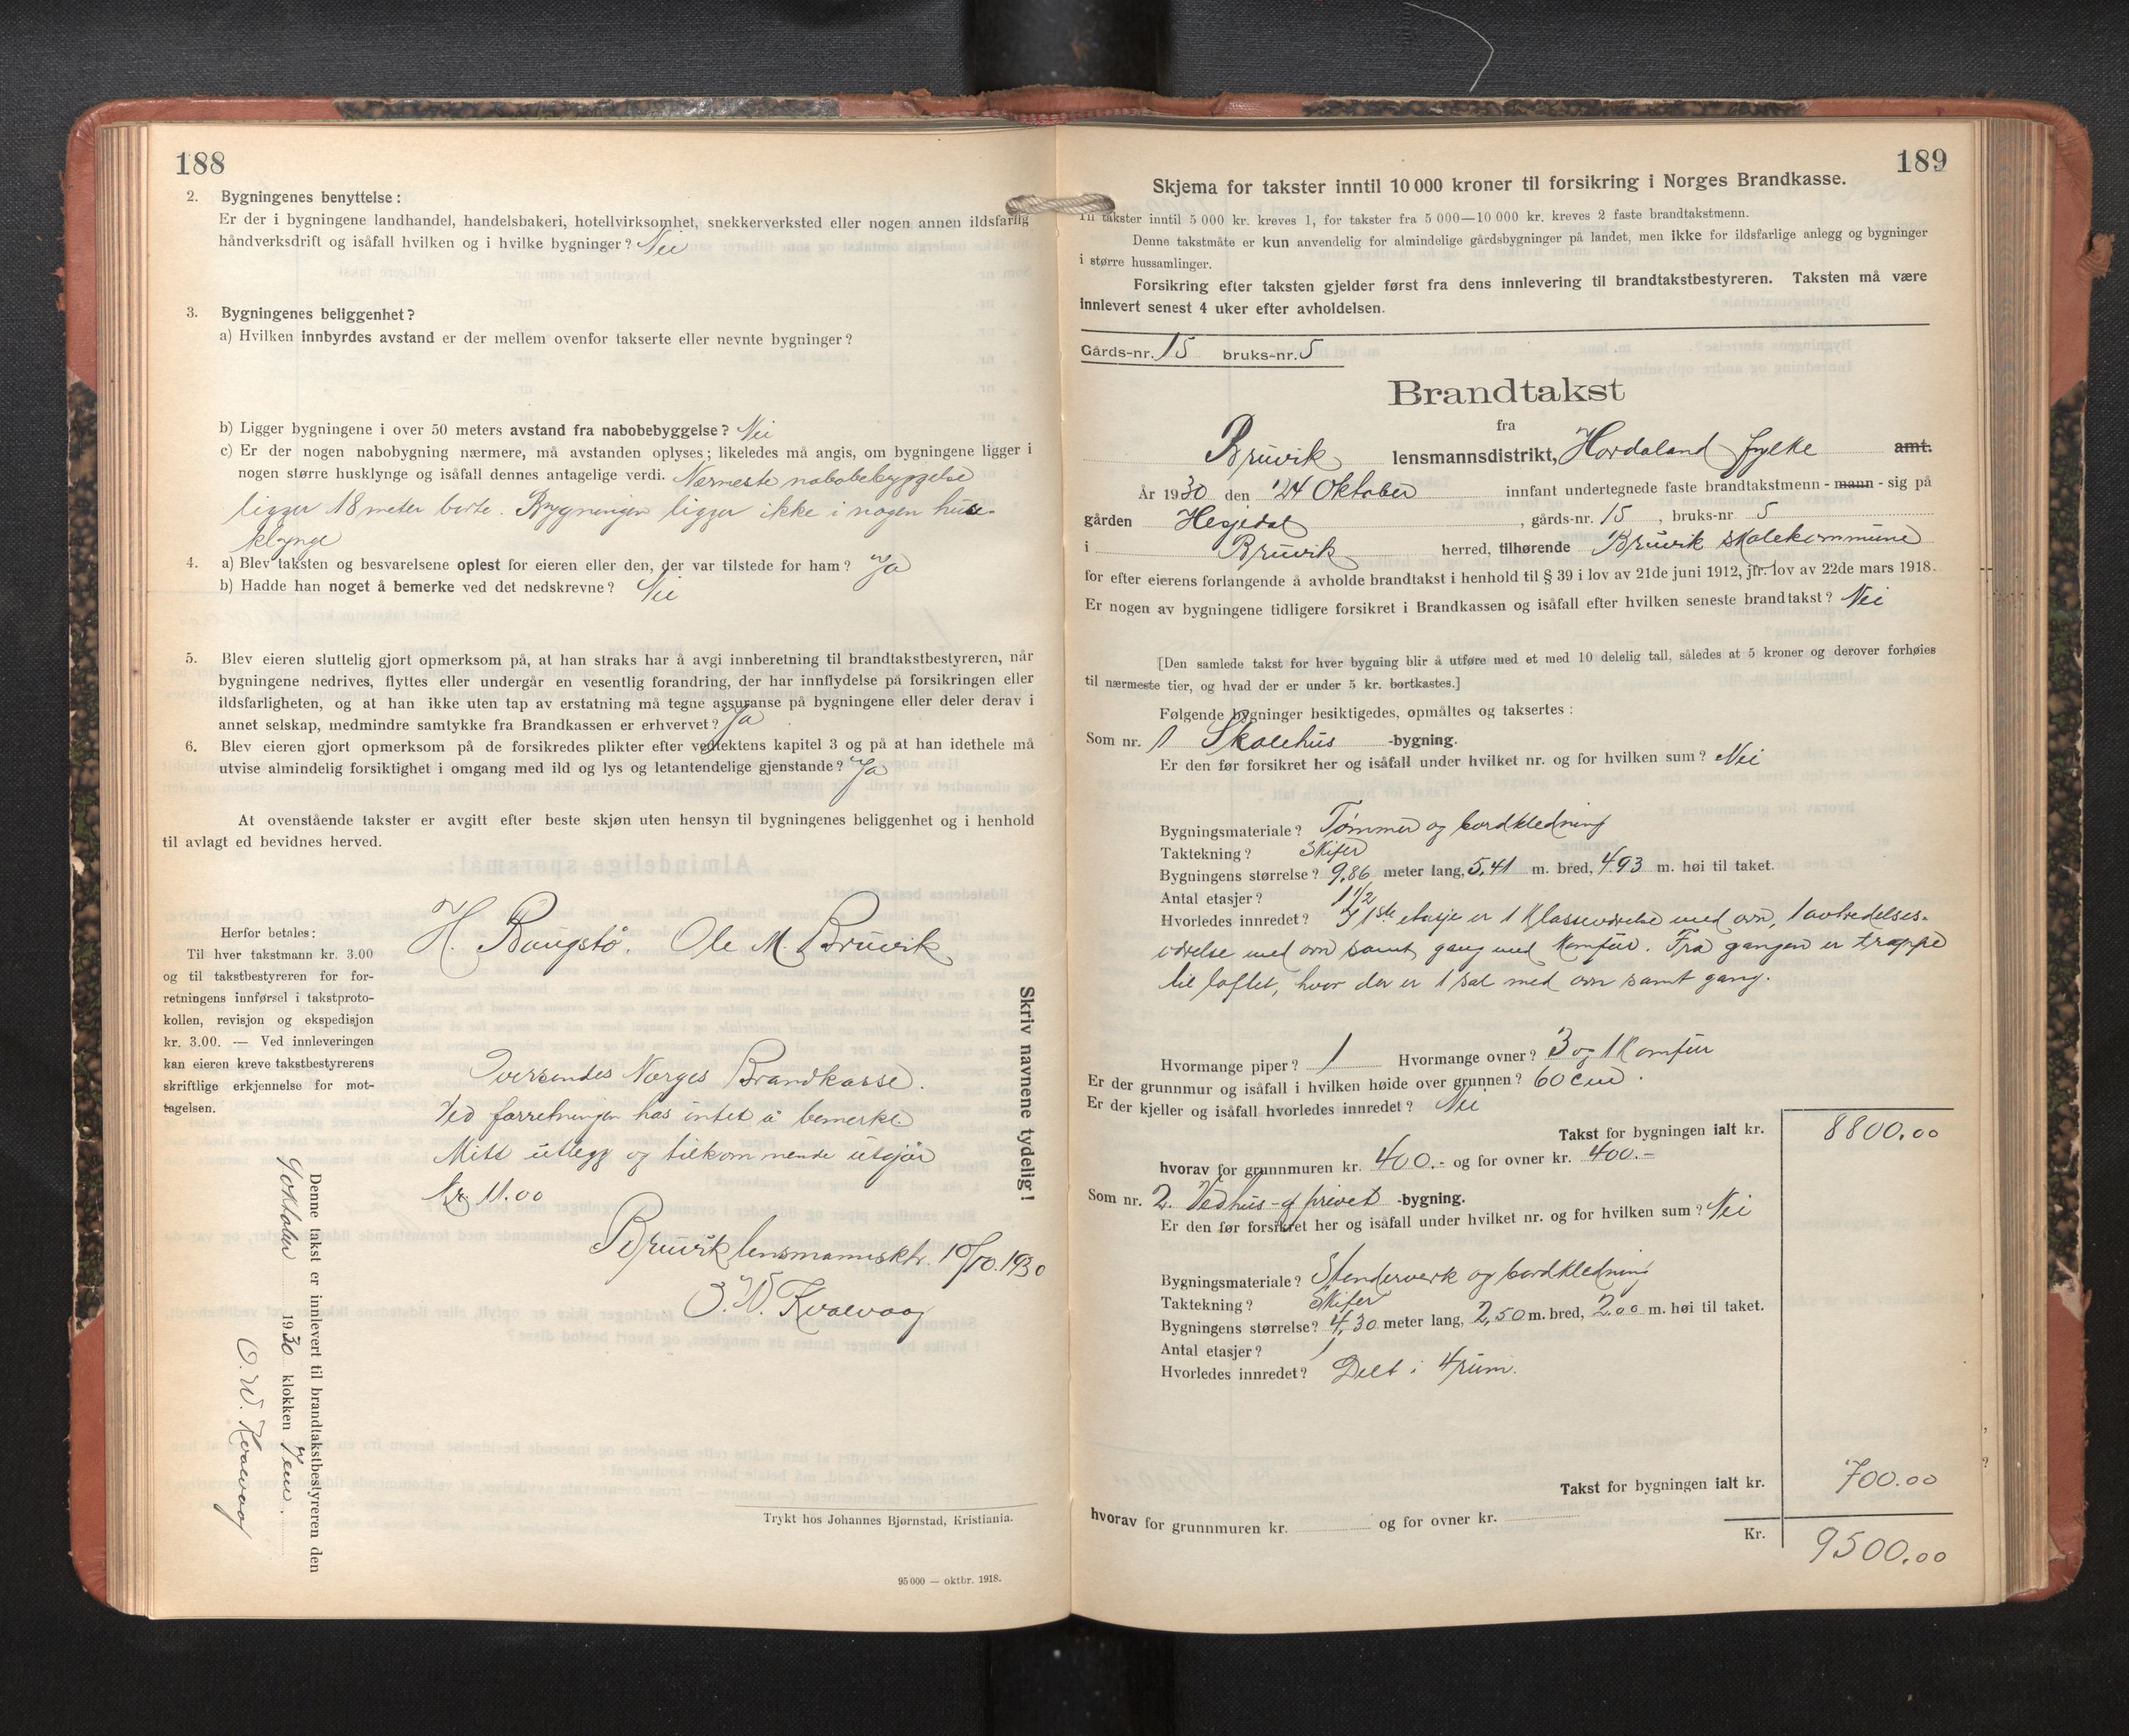 188
2. Bygningenes benyttelse:
Er der i bygningene landhandel, handelsbakeri, hotellvirksomhet, snekkerverksted eller nogen annen ildsfarlig
håndverksdrift og isåfall hvilken og i hvilke bygninger? Nei
3. Bygningenes beliggenhet?
a) Hvilken innbyrdes avstand er der mellem ovenfor takserte eller nevnte bygninger?
b) Ligger bygningene i over 50 meters avstand fra nabobebyggelse? Nei
c) Er der nogen nabobygning nærmere, må avstanden oplyses; likeledes må angis, om bygningene ligger i
nogen større husklynge og isåfall dennes antagelige verdi. Nærmeste nabobebyggelse
ligger 18 meter borte. Bygningen ligger ikke i nogen huse-
klynge
4. a) Blev taksten og besvarelsene oplest for eieren eller den, der var tilstede for ham? Ja
b) Hadde han noget å bemerke ved det nedskrevne? Nei
5. Blev eieren sluttelig gjort opmerksom på, at han straks har å avgi innberetning til brandtakstbestyreren, når
bygningene nedrives, flyttes eller undergår en vesentlig forandring, der har innflydelse på forsikringen eller
ildsfarligheten, og at han ikke uten tap av erstatning må tegne assuranse på bygningene eller deler derav i
annet selskap, medmindre samtykke fra Brandkassen er erhvervet? Ja
6. Blev eieren gjort opmerksom på de forsikredes plikter efter vedtektens kapitel 3 og på at han idethele må
utvise almindelig forsiktighet i omgang med ild og lys og letantendelige gjenstande? Ja
At ovenstående takster er avgitt efter beste skjøn uten hensyn til bygningenes beliggenhet og i henhold
til avlagt ed bevidnes herved.
H. Baugstø. Ole M. Bruvik
Herfor betales:
Til hver takstmann kr. 3.00
og til takstbestyreren for for-
retningens innførsel i takstproto-
kollen, revisjon og ekspedisjon
kr. 3.00. — Ved innleveringen
kan eieren kreve takstbestyrerens
skriftlige erkjennelse for mot-
tagelsen.
Skriv navnene tydelig!
Oversendes Norges Brandkasse.
Ved forretningen has intet å bemerke.
Mitt utlegg og tilkommende utgjør
Kr. 11.00
Bruvik lensmannsktr. 10/10.1930
O. W. Kvalvaag
Denne takst er innlevert til brandtakstbestyreren den
oktober 1930 klokken
O. W. Kvalvaag
Trykt hos Johannes Bjørnstad, Kristiania.
95 000 — oktbr. 1918.
189
Skjema for takster inntil 10 000 kroner til forsikring i Norges Brandkasse.
Til takster inntil 5 000 kr. kreves 1, for takster fra 5 000—10 000 kr. kreves 2 faste brandtakstmenn.
Denne takstmåte er kun anvendelig for almindelige gårdsbygninger på landet, men ikke for ildsfarlige anlegg og bygninger
i større hussamlinger.
Forsikring efter taksten gjelder først fra dens innlevering til brandtakstbestyreren. Taksten må være
innlevert senest 4 uker efter avholdelsen.
Gårds-nr. 15 bruks-nr. 5
Brandtakst
fra
Bruvik lensmannsdistrikt, Hordaland fylke amt.
År 1930 den 24 Oktober innfant undertegnede faste brandtakstmenn - mann - sig på
gården Hesjedal, gårds-nr. 15, bruks-nr 5
i Bruvik herred, tilhørende Bruvik skolekommune
for efter eierens forlangende å avholde brandtakst i henhold til § 39 i lov av 21de juni 1912, jfr. lov av 22de mars 1918.
Er nogen av bygningene tidligere forsikret i Brandkassen og isåfall efter hvilken seneste brandtakst? Nei
[Den samlede takst for hver bygning blir å utføre med et med 10 delelig tall, således at 5 kroner og derover forhøies
til nærmeste tier, og hvad der er under 5 kr. bortkastes.]
Følgende bygninger besiktigedes, opmåltes og taksertes:
Som nr. 1 Skolehus -bygning.
Er den før forsikret her og isåfall under hvilket nr. og for hvilken sum? Nei
Bygningsmateriale? Tømmer og bordkledning
Taktekning? Skifer
Bygningens størrelse? 9,86 meter lang, 5,41 m. bred, 4.93 m. høi til taket.
Antal etasjer? 1 1/2
Hvorledes innredet? I 1ste etasje er 1 klasseværelse med ovn, 1 avtredelses-
værelse med ovn samt gang med komfur. Fra gangen er trappe
til loftet, hvor der er 1 sal med ovn samt gang.
Hvormange piper? 1 Hvormange ovner? 3 og 1 Komfur
Er der grunnmur og isåfall i hvilken høide over grunnen? 60 cm.
Er der kjeller og isåfall hvorledes innredet? Nei
Takst for bygningen ialt kr. 8800.00
hvorav for grunnmuren kr. 400.- og for ovner kr. 400.-
Som nr. 2. Vedhus- og privet -bygning.
Er den før forsikret her og isåfall under hvilket nr. og for hvilken sum? Nei
Bygningsmateriale? Stenderverk og bordkledning
Taktekning? Skifer
Bygningens størrelse? 4,30 meter lang, 2,50 m. bred, 2.00 m. høi til taket.
Antal etasjer? 1
Hvorledes innredet? Delt i 4 rum.
Takst for bygningen ialt kr. 700.00
hvorav for grunnmuren kr. og for ovner kr.
Kr. 9500.00